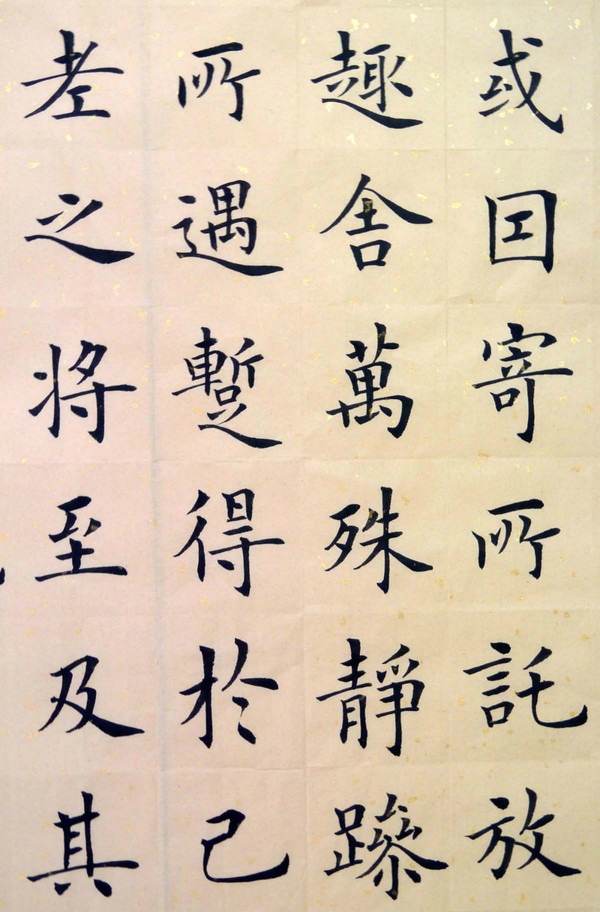 或囙寄所託放
趣舍萬殊靜躁
所遇蹔得於己
老之将至及其